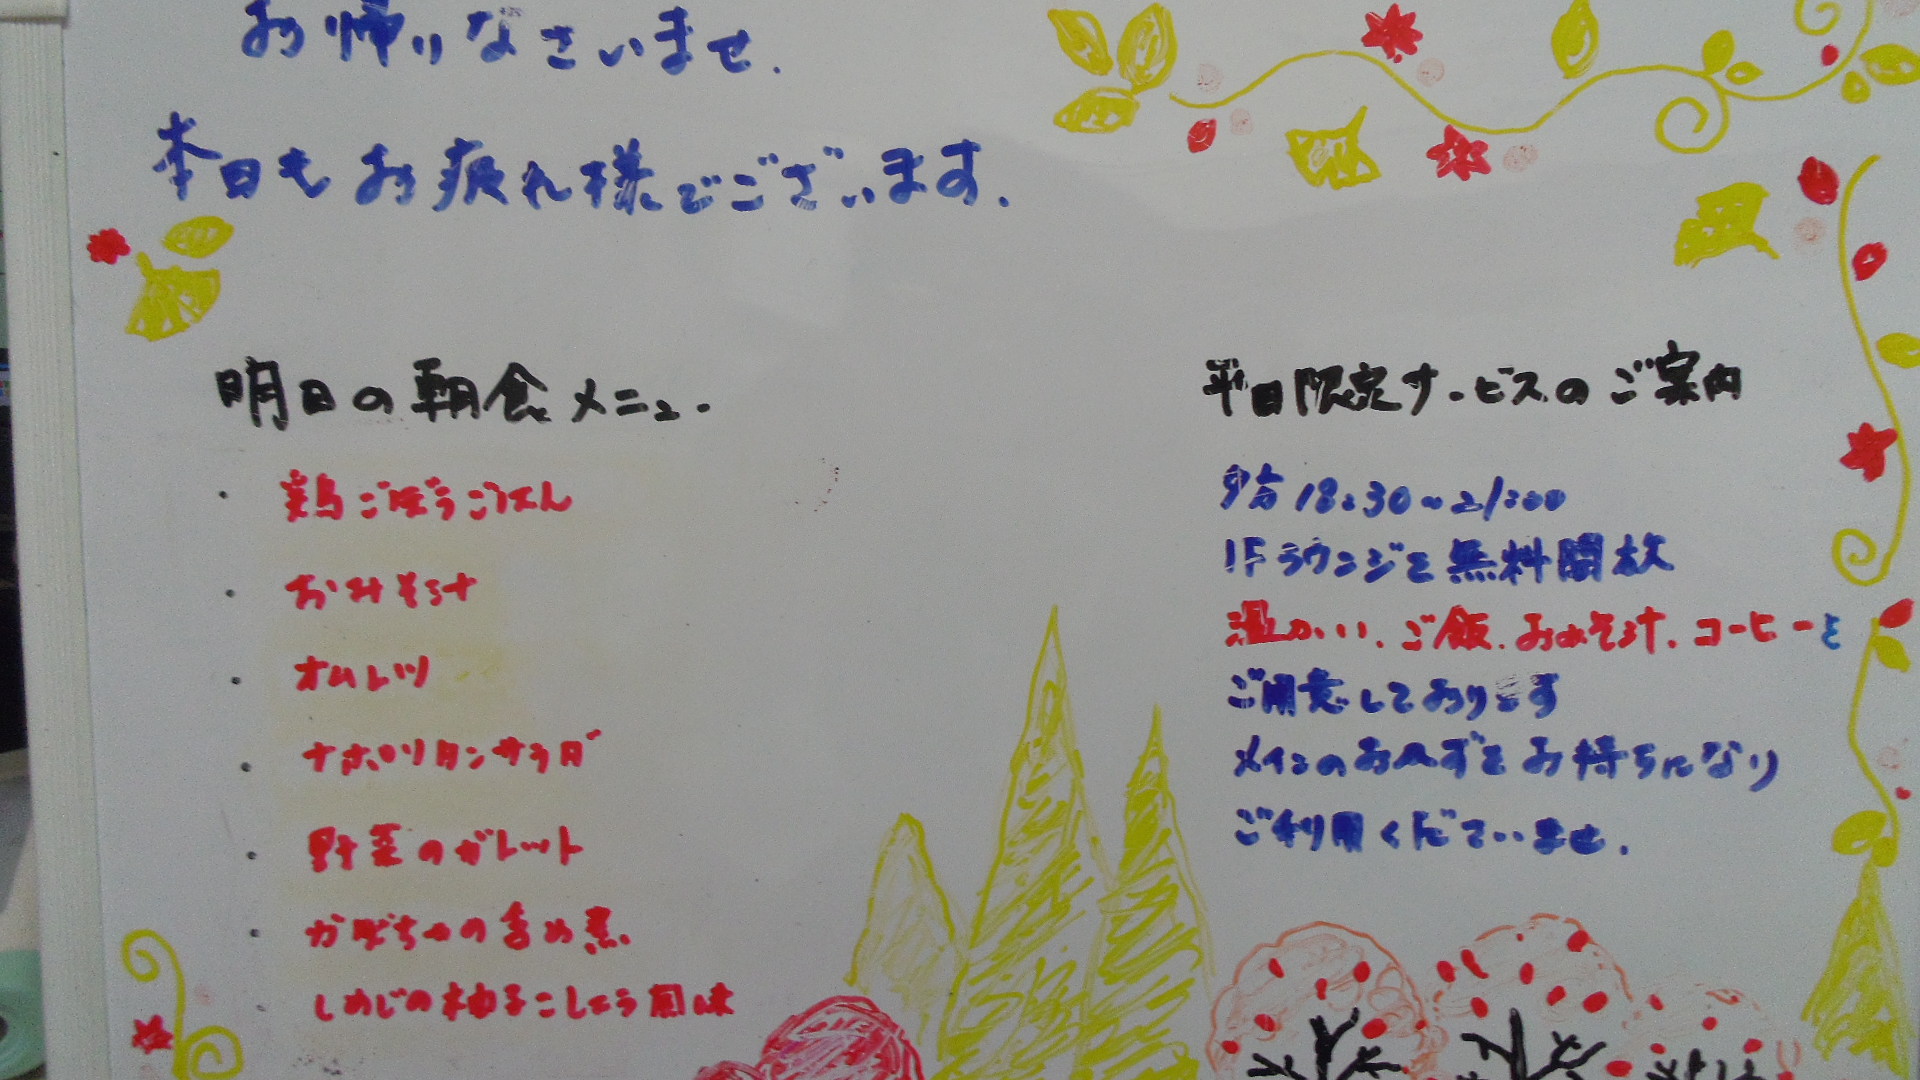 お帰りなさいませ.
本日もお疲れ様でございます.
明日の朝食メニュー
・鶏ごぼうごはん
・おみそ汁
・オムレツ
・ナポリタンサラダ
・野菜のガレット
・かぼちゃの含め煮
・しめじの柚子こしょう風味
平日限定サービスのご案内
夕方18:30~21:00
1Fラウンジを無料開放
温かい.ご飯.おみそ汁.コーヒーを
ご用意しております
メインのおかずをお持ちになり
ご利用くださいませ.